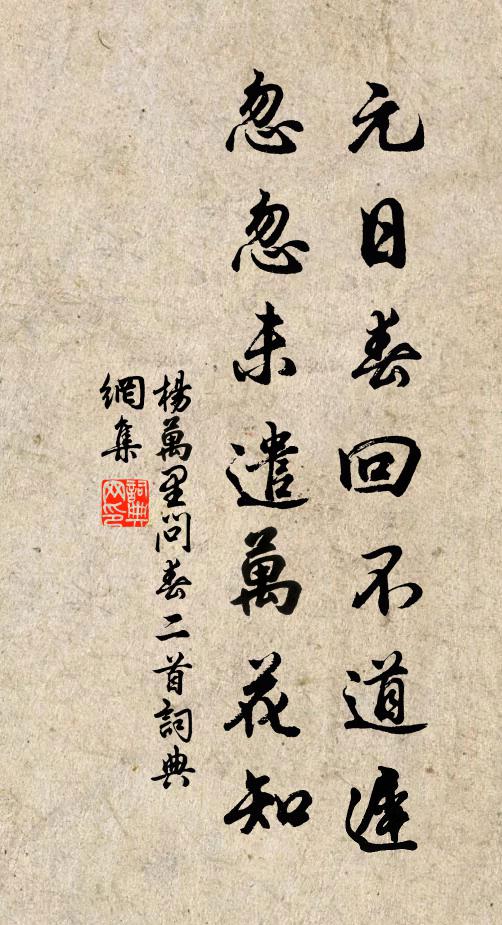 元日春回不道遲
忽忽未遣萬花知
楊萬里問春二首詞典
網集
詞典
网印